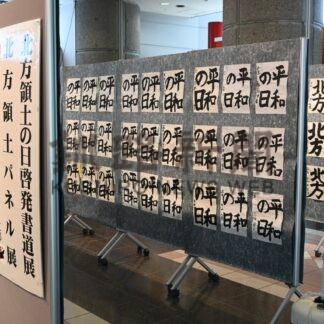 北方領土の日啓発書道展
北方領土パネル展
平和
の日
平和
の日
平和
の日
平和
の日
平和
の日
平和
の日
平和
の日
平和
の日
平和
の日
平和
の日
平和
の日
平和
の日
平和
の日
平和
の日
平和
の日
平和
の日
平和
の日
平和
の日
平和
の日
平和
の日
平和
の日
平和
の日
平和
の日
平和
の日
平和
の日
平和
の日
平和
の日
北方
北方
北方